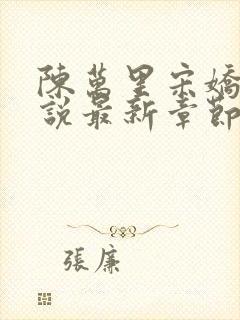 陳萬里宋嬌
說最新章節
張廉